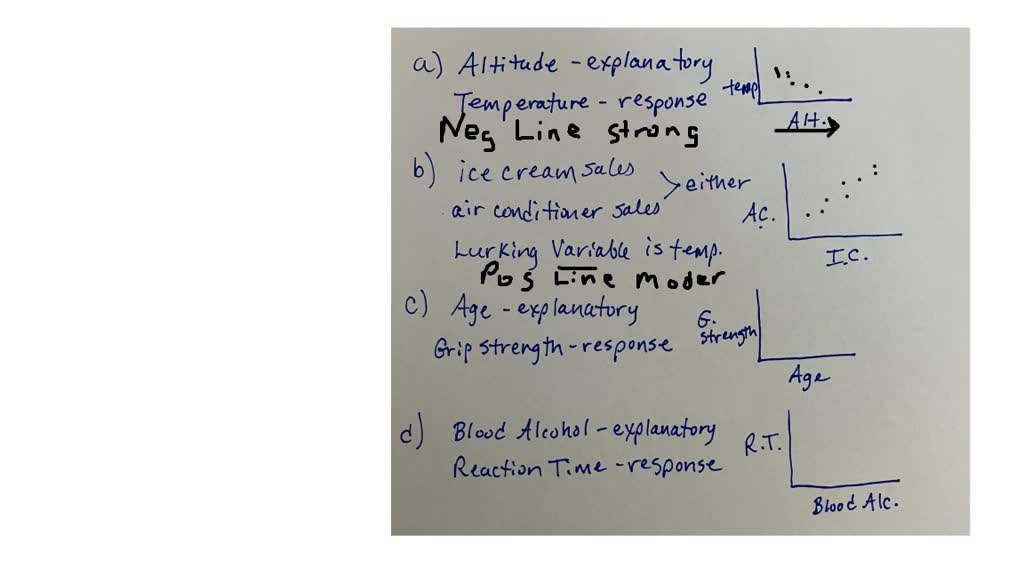 a) Altitude - explanatory
Temperature - response
temp
Alt.
Neg Line strong
b) ice cream sales
air conditioner sales
either
A.C.
I.C.
Lurking Variable is temp.
Pos Line moder
c) Age - explanatory
Grip strength - response
G. strength
Age
d) Blood Alcohol - explanatory
Reaction Time - response
R.T.
Blood Alc.